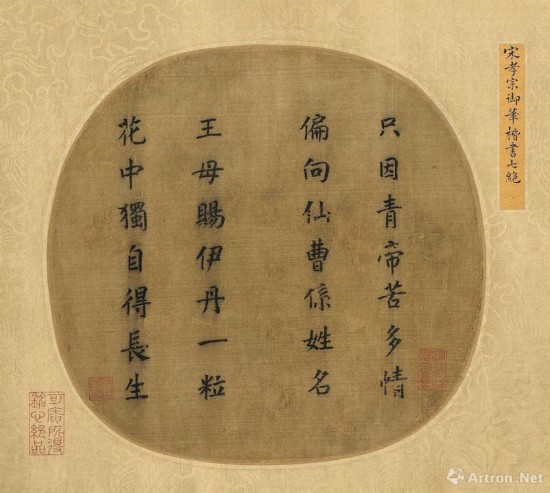 宋孝宗御筆楷書七絕
只因青帝苦多情
偏向仙曹係姓名
王母賜伊丹一粒
花中獨自得長生
雅昌艺术网
Artron.Net